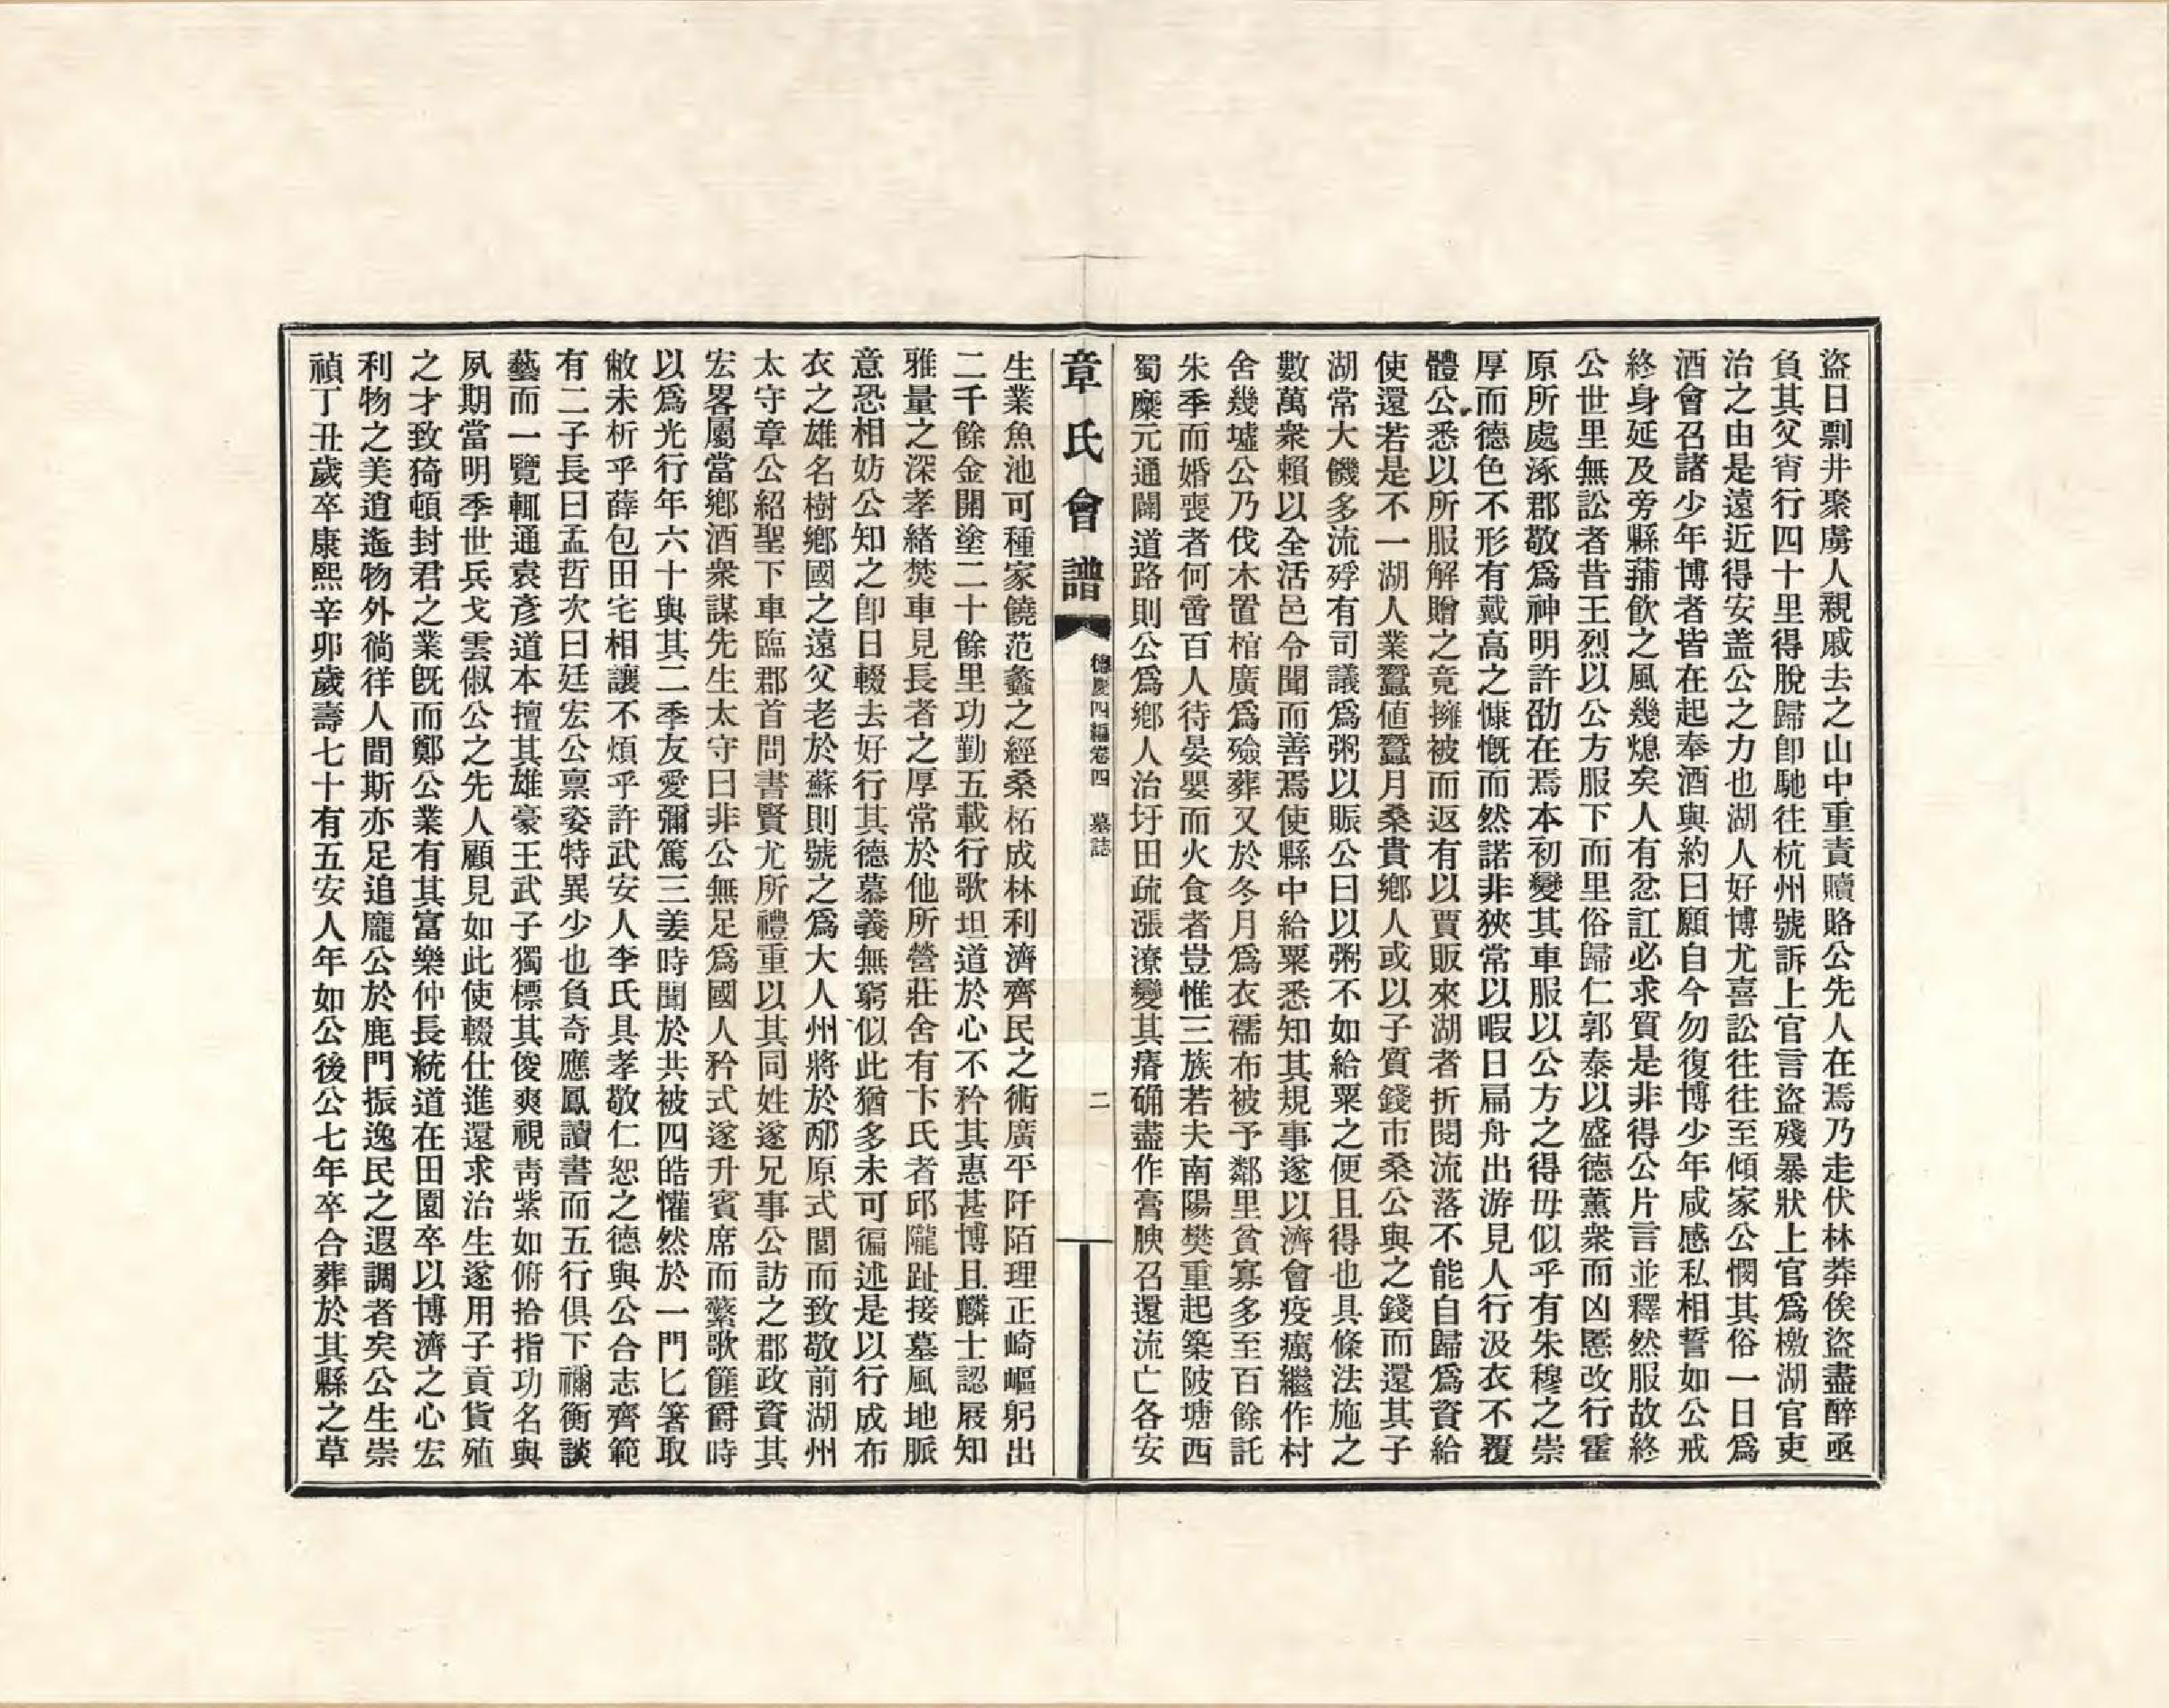 盜日剽井聚虜人親戚去之山中重責贖賂公先人在焉乃走伏林莽俟盜盡醉亟
負其父宵行四十里得脫歸卽馳往杭州號訴上官言盜殘暴狀上官爲檄湖官吏
治之由是遠近得安蓋公之力也湖人好博尤喜訟往往至傾家公憫其俗一日爲
酒會召諸少年博者皆在起奉酒與約曰願自今勿復博少年咸感私相誓如公戒
終身延及旁縣蒱飲之風幾熄矣人有忿訌必求質是非得公片言並釋然服故終
公世里無訟者昔王烈以公方服下而里俗歸仁郭泰以盛德薰衆而凶慝改行霍
原所處涿郡敬爲神明許劭在焉本初變其車服以公方之得毋似乎有朱穆之崇
厚而德色不形有戴高之慷慨而然諾非狹常以暇日扁舟出游見人行汲衣不覆
體公悉以所服解贈之竟擁被而返有以賈販來湖者折閱流落不能自歸爲資給
使還若是不一湖人業蠶値蠶月桑貴鄉人或以子質錢市桑公與之錢而還其子
湖常大饑多流殍有司議爲粥以賑公曰以粥不如給粟之便且得也具條法施之
數萬衆賴以全活邑令聞而善焉使縣中給粟悉知其規事遂以濟會疫癘繼作村
舍幾墟公乃伐木置棺廣爲殮葬又於冬月爲衣襦布被予鄰里貧寡多至百餘託
朱季而婚喪者何啻百人待晏嬰而火食者豈惟三族若夫南陽樊重起築陂塘西
蜀糜元通闢道路則公爲鄉人治圩田疏漲潦變其瘠确盡作膏腴召還流亡各安
章氏會譜
德慶四編卷四　墓誌
二
生業魚池可種家饒范蠡之經桑柘成林利濟齊民之術廣平阡陌理正崎嶇躬出
二千餘金開塗二十餘里功勤五載行歌坦道於心不矜其惠甚博且麟士認屐知
雅量之深孝緒焚車見長者之厚常於他所營莊舍有卞氏者邱隴趾接墓風地脈
意恐相妨公知之卽日輟去好行其德慕義無窮似此猶多未可徧述是以行成布
衣之雄名樹鄉國之遠父老於蘇則號之爲大人州將於邴原式閭而致敬前湖州
太守章公紹聖下車臨郡首問書賢尤所禮重以其同姓遂兄事公訪之郡政資其
宏畧屬當鄉酒衆謀先生太守曰非公無足爲國人矜式遂升賓席而縈歌篚爵時
以爲光行年六十與其二季友愛彌篤三姜時聞於共被四皓懽然於一門匕箸取
敝未析乎薛包田宅相讓不煩乎許武安人李氏具孝敬仁恕之德與公合志齊範
有二子長曰孟哲次曰廷宏公禀姿特異少也負奇應鳳讀書而五行俱下禰衡談
藝而一覽輒通袁彥道本擅其雄豪王武子獨標其俊爽視靑紫如俯拾指功名與
夙期當明季世兵戈雲俶公之先人顧見如此使輟仕進還求治生遂用子貢貨殖
之才致猗頓封君之業旣而鄭公業有其富樂仲長統道在田園卒以博濟之心宏
利物之美逍遙物外徜徉人間斯亦足追龐公於鹿門振逸民之遐調者矣公生崇
禎丁丑歲卒康熙辛卯歲壽七十有五安人年如公後公七年卒合葬於其縣之草